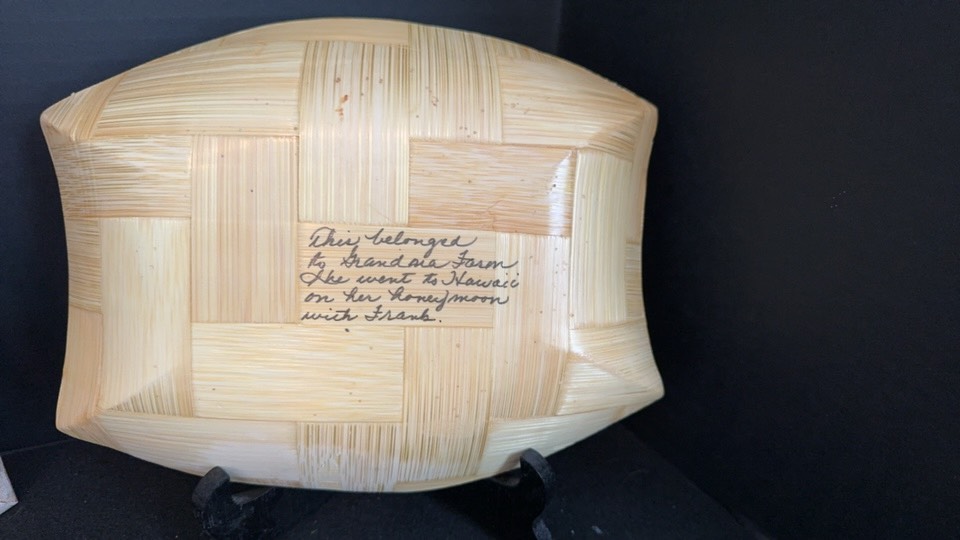 This belonged
to Grandma
She went to Hawaii
on her honeymoon
with Frank.